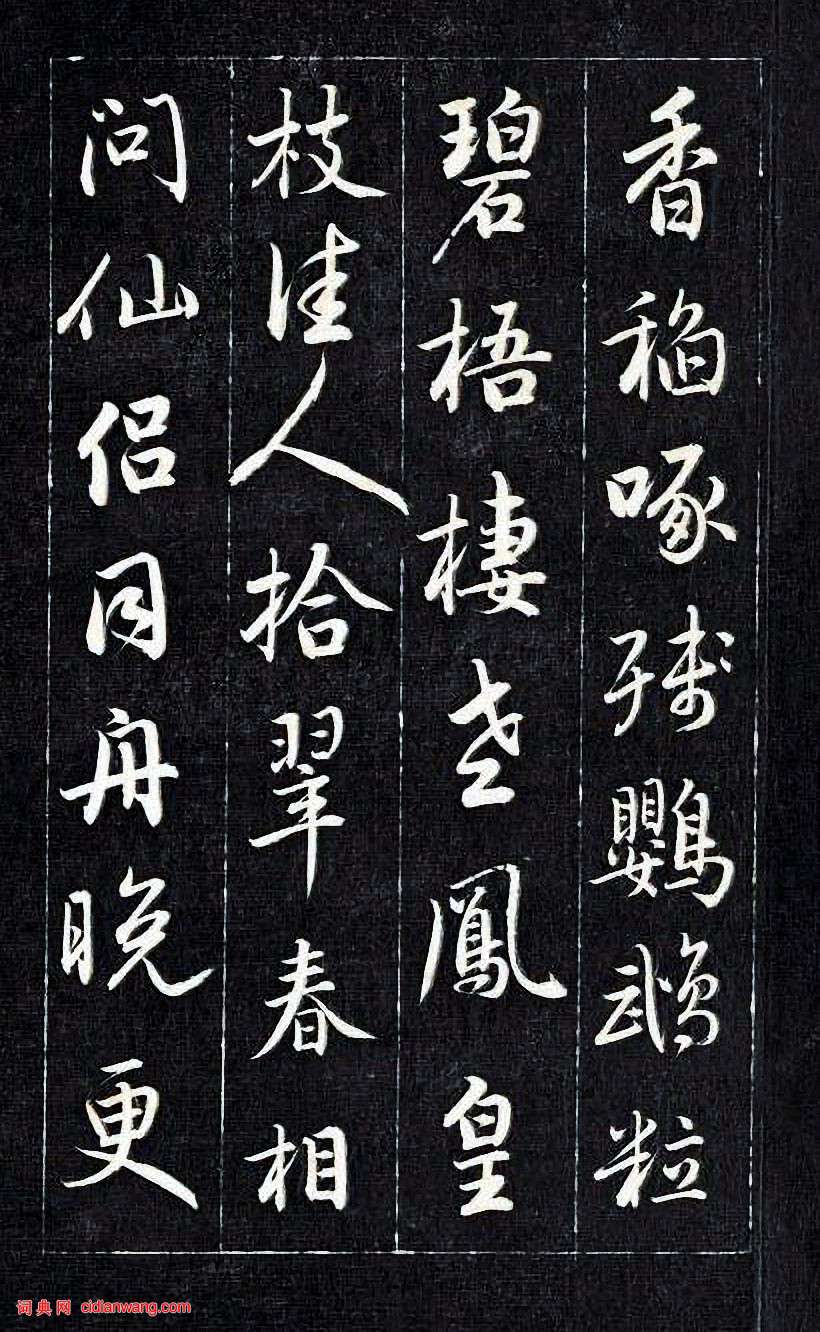 香稻啄殘鸚鵡粒
碧梧棲老鳳皇
枝佳人拾翠春相
问仙侣同舟晚更
词典网 cidianwang.com